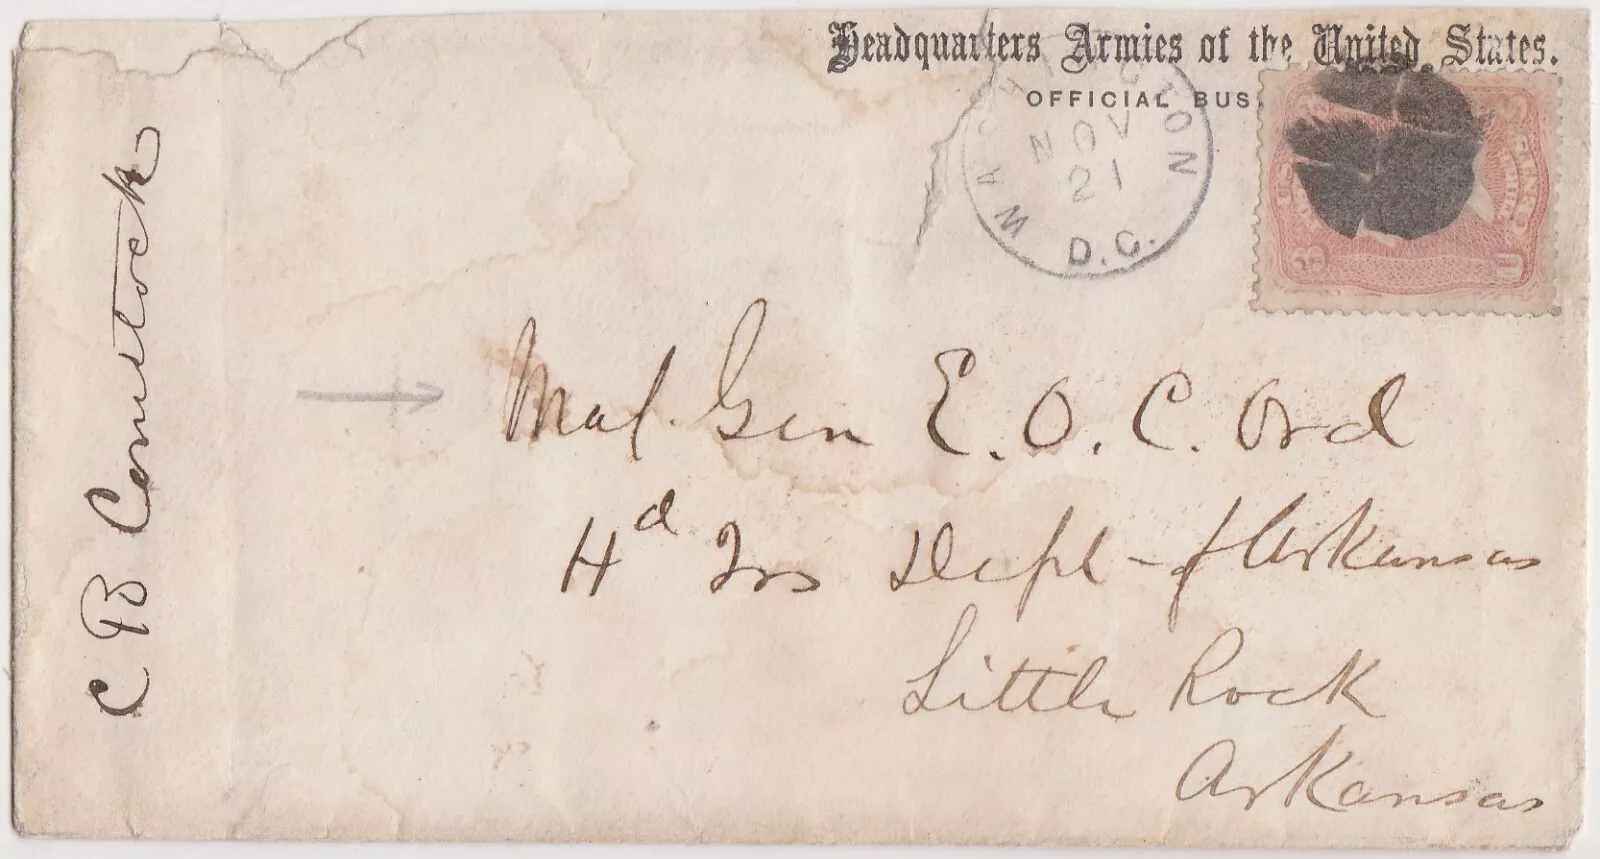 Headquarters Armies of the United States.
OFFICIAL BUS
WASHINGTON
NOV
21
D.C.
C B Comstock
Maj. Gen E. O. C. Ord
Hd Qrs Dept of Arkansas
Little Rock
Arkansas
3 U